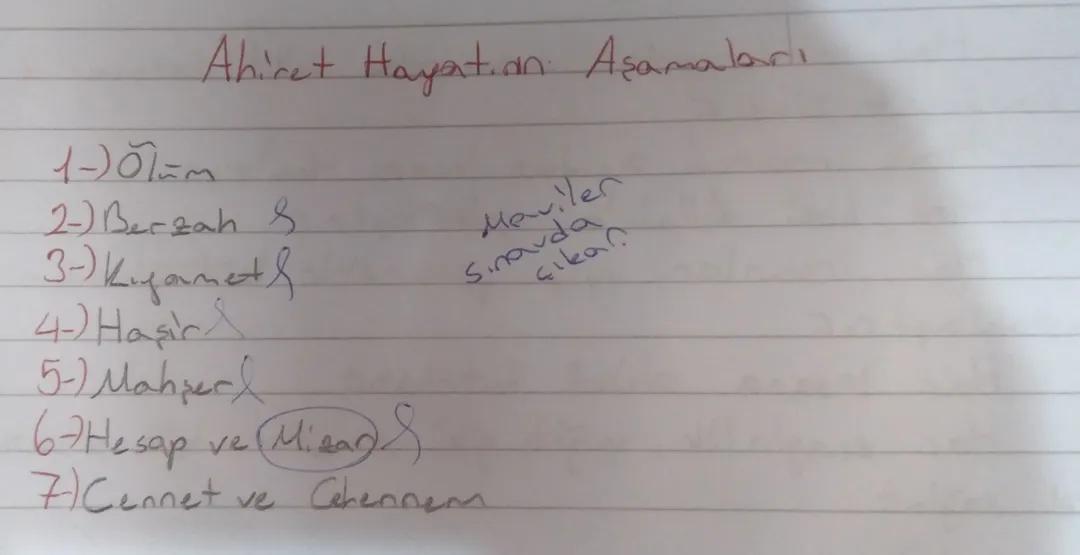 Ahiret Hayatının Aşamaları
1-) Ölüm
2-) Berzah
3-) Kıyamet
4-) Haşir
5-) Mahşer
6-) Hesap ve Mizan
7-) Cennet ve Cehennem
Maviler
sınavda
çıkar.